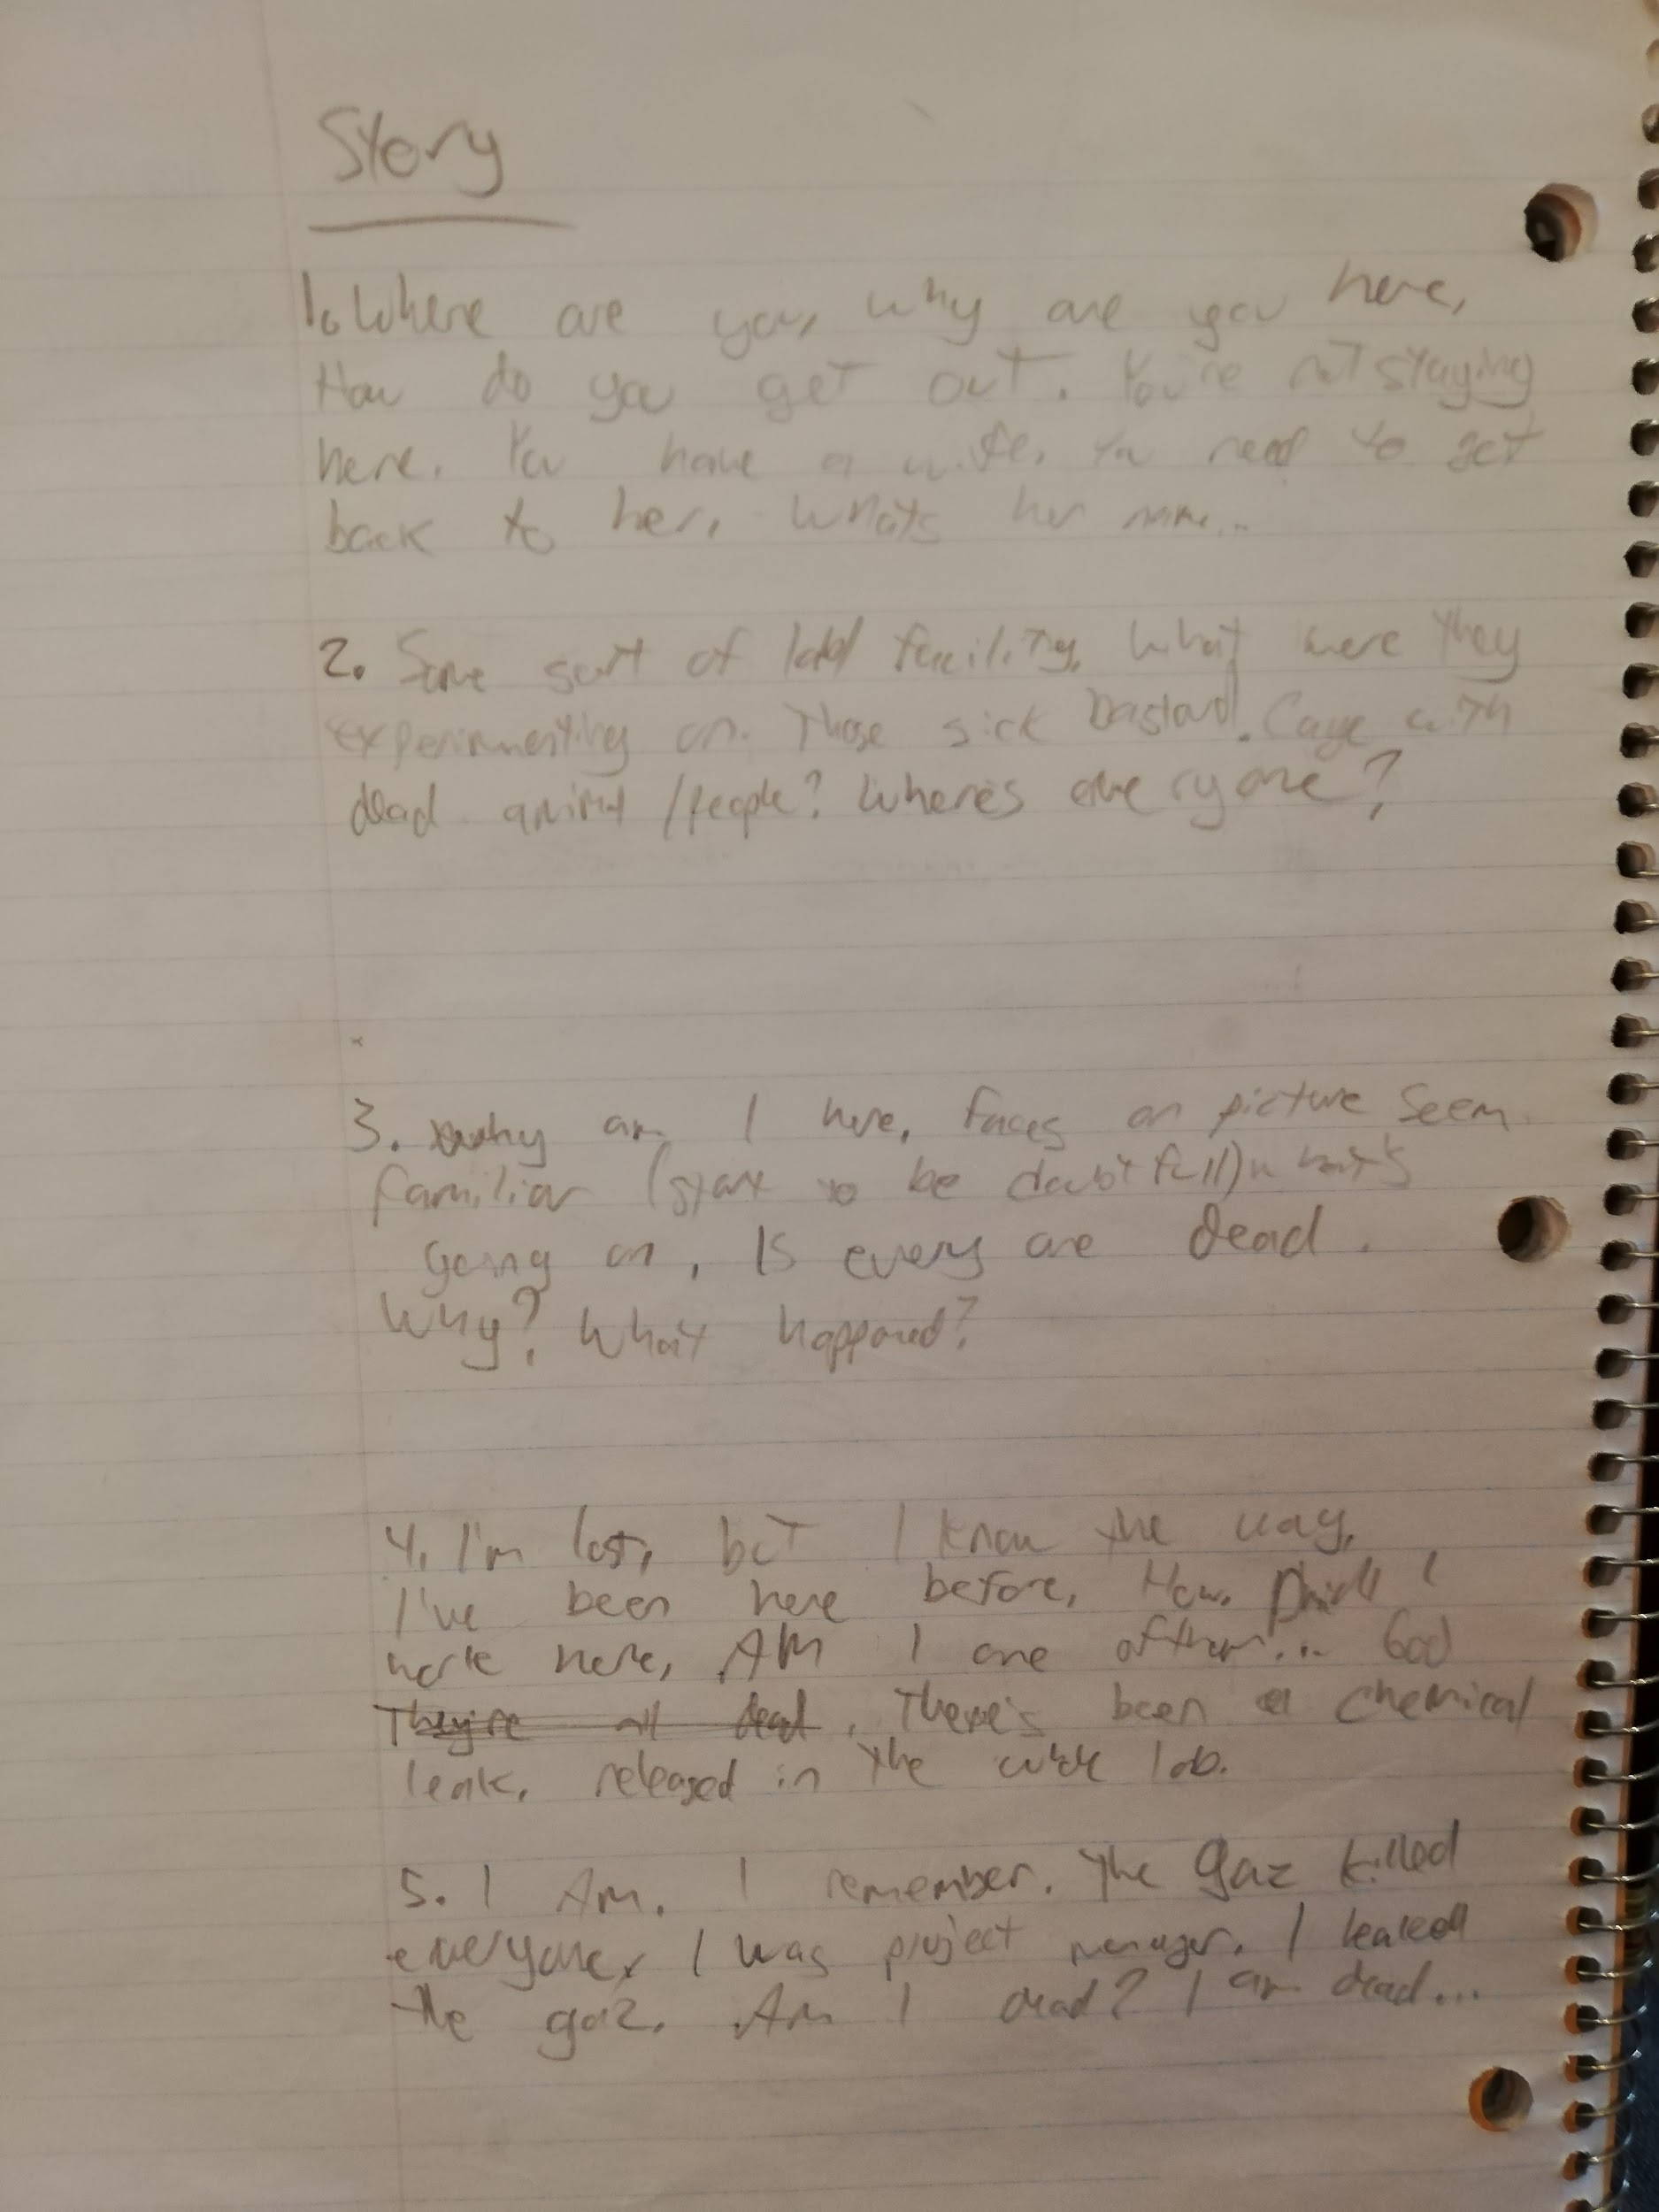 Story
1. Where are you, why are you here,
How do you get out. You're not staying
here. You have a wife. You need to get
back to her. Whats her name...
2. Some sort of lab facility. What were they
experimenting on. Those sick bastard. Cage with
dead animal /people? Where's everyone?
3. why am I here, faces on picture seem
familiar (start to be doubtfull) what's
going on, Is every one dead.
Why? What happened?
4. I'm lost, but I know the way.
I've been here before, How. Did I
work here, AM I one of them... God
They're all dead. There's been a chemical
leak, released in the lab.
5. I Am. I remember. The gaz killed
everyone, I was project manager. I leaked
the gaz. Am I dead? I am dead...